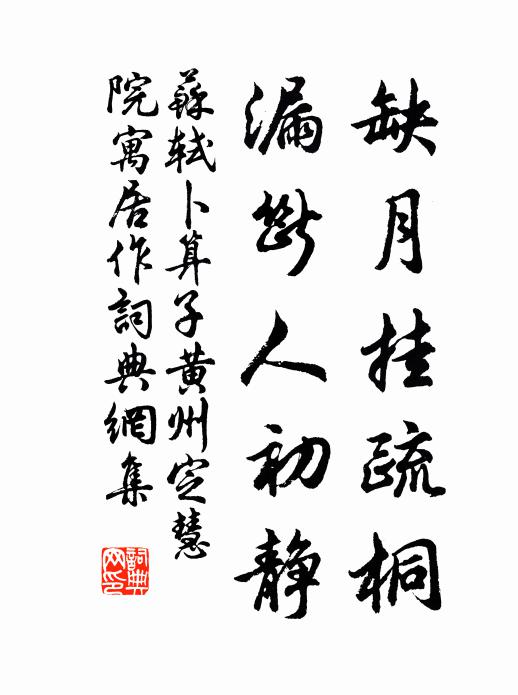 缺月挂疏桐
漏断人初静
蘇軾卜算子黄州定慧
院寓居作詞典網集
詞典网印